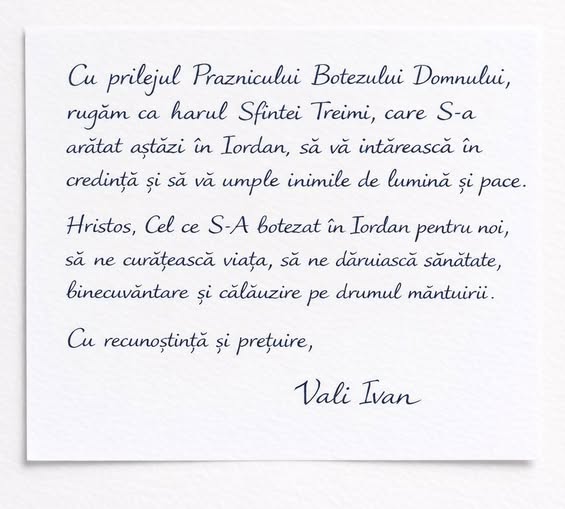 Cu prilejul Praznicului Botezului Domnului,
rugăm ca harul Sfintei Treimi, care S-a
arătat aștăzi în Iordan, să vă intărească în
credință și să vă umple inimile de lumină și pace.
Hristos, Cel ce S-A botezat în Iordan pentru noi,
să ne curățească viața, să ne dăruiască sănătate,
binecuvântare și călăuzire pe drumul măntuirii.
Cu recunoștință și prețuire,
Vali Ivan